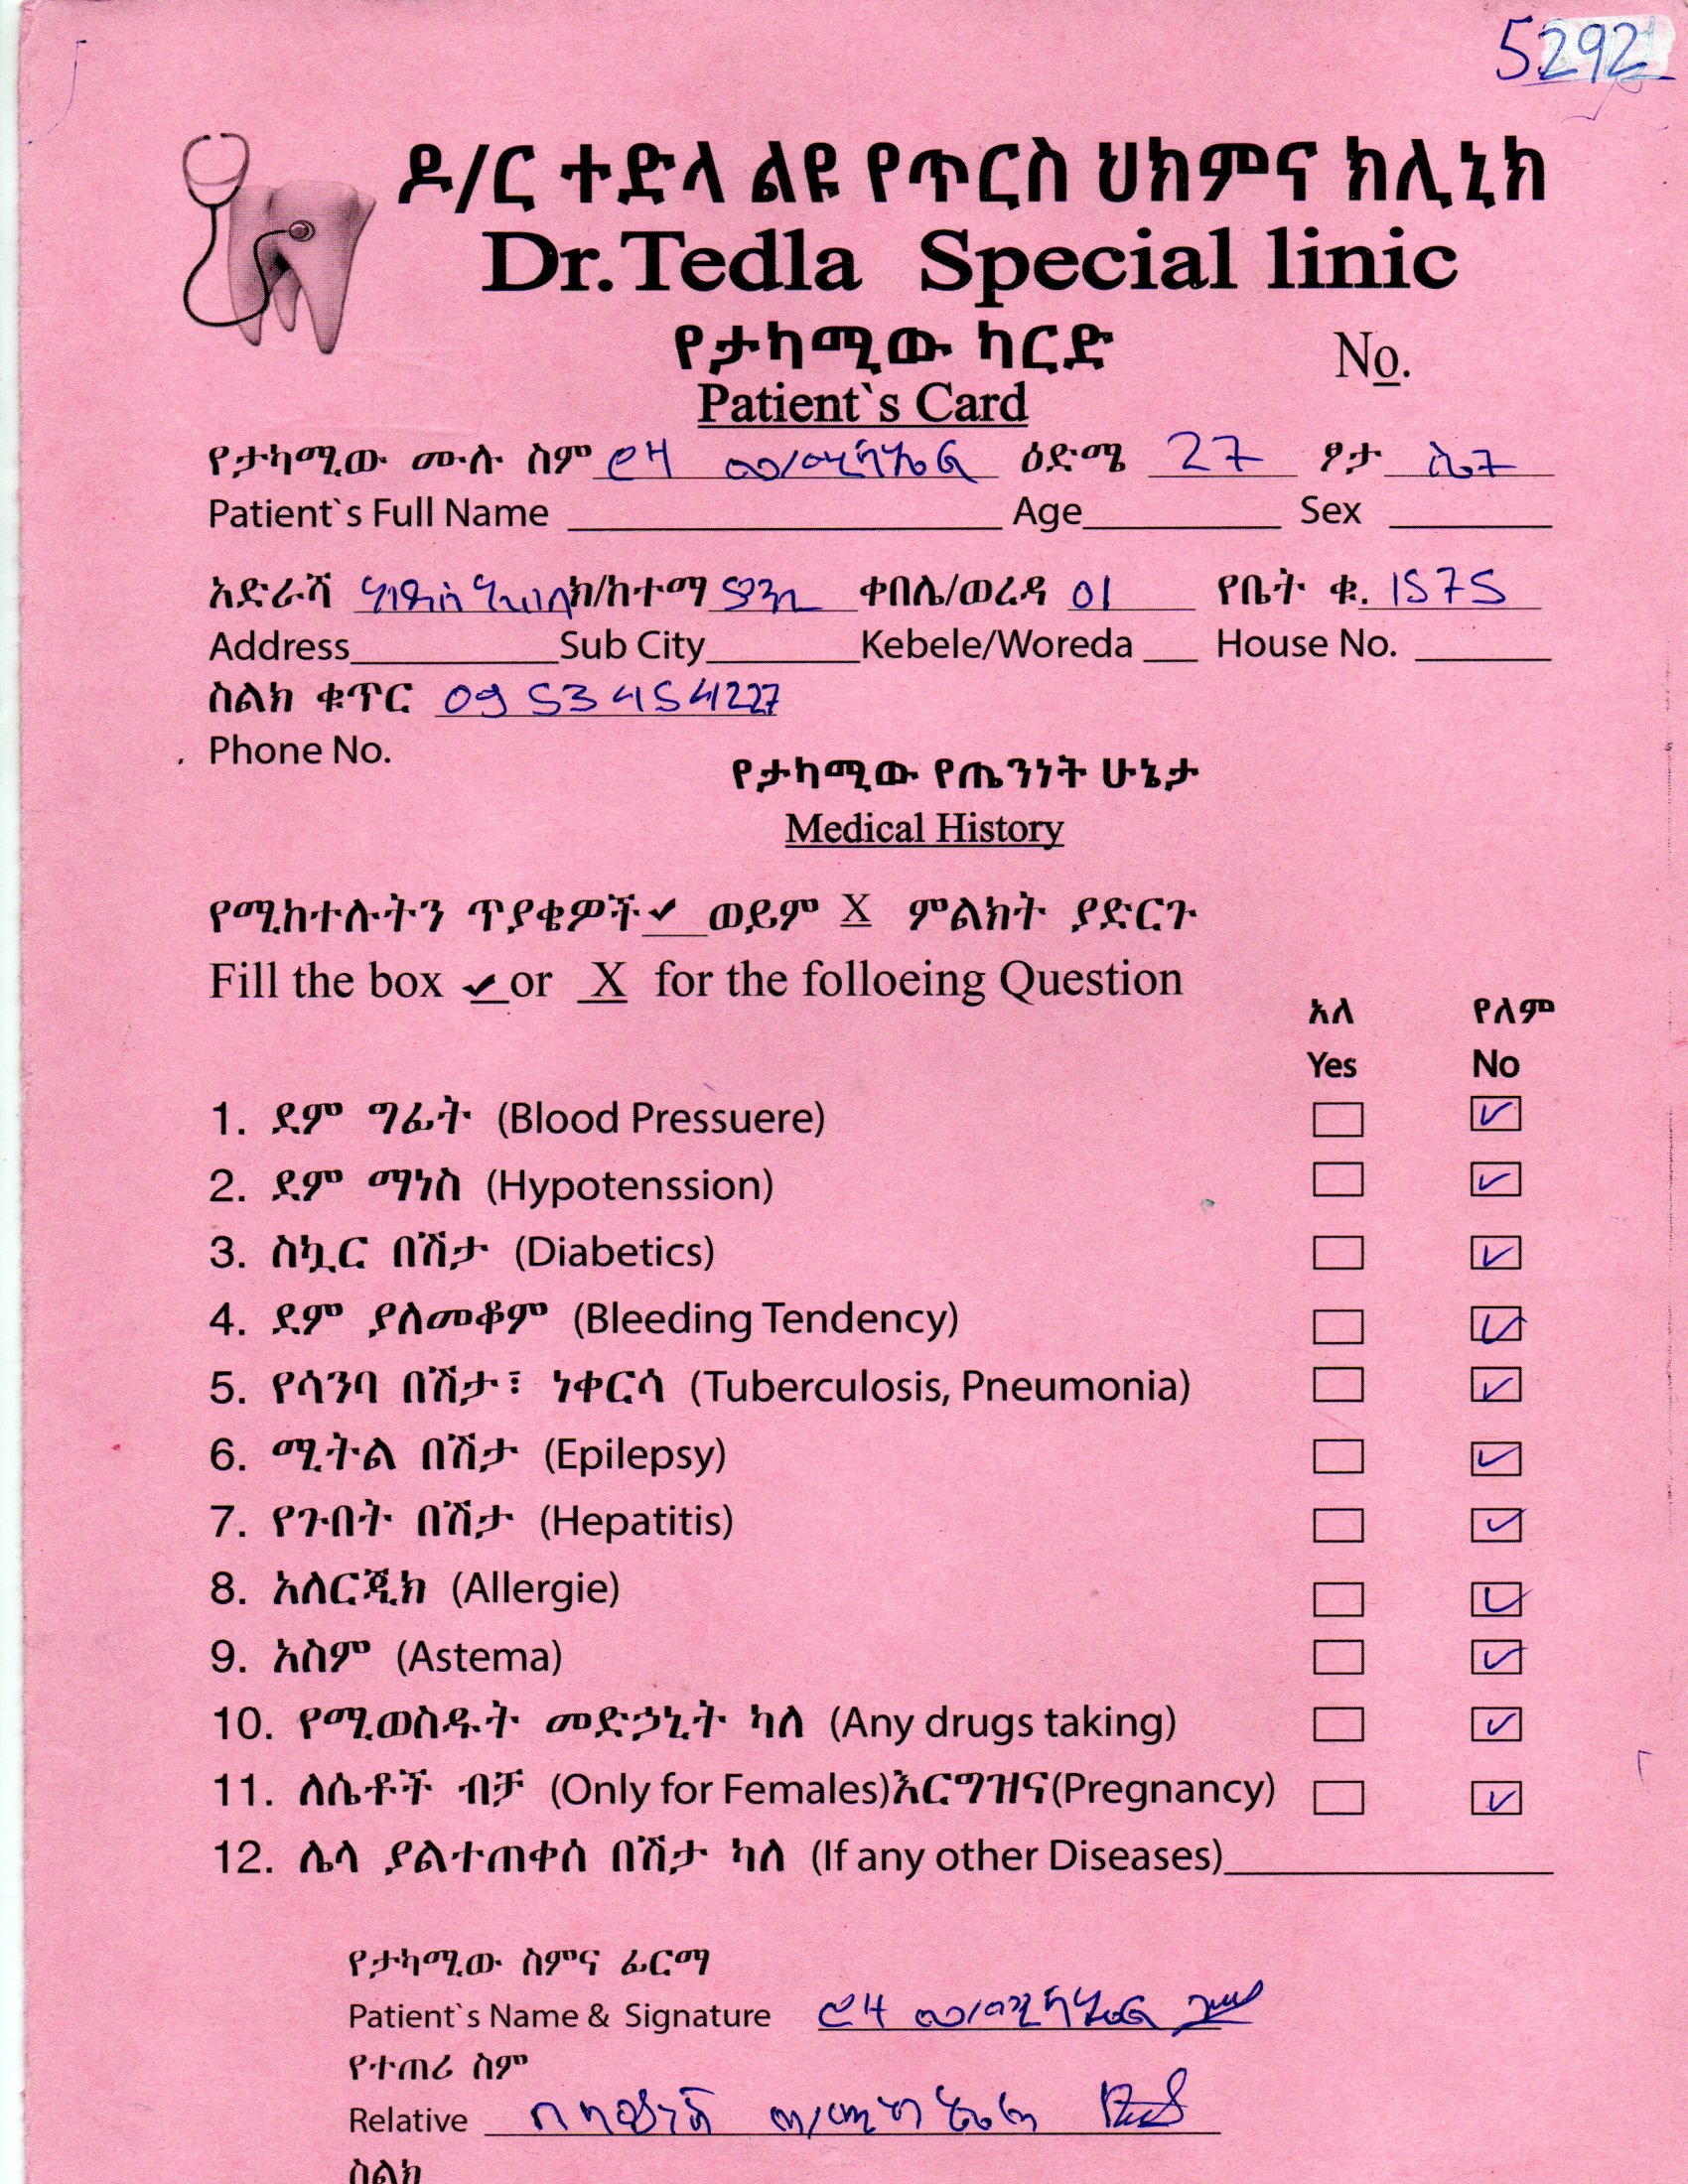 5292
ዶ/ር ተድላ ልዩ የጥርስ ህክምና ክሊኒክ
Dr.Tedla Special linic
የታካሚው ካርድ
No.
Patient`s Card
የታካሚው ሙሉ ስም ሮዛ ወ/ሚካኤል ዕድሜ 27 ፆታ ሴት
Patient`s Full Name Age Sex
አድራሻ አዲስ አበባ ክ/ከተማ ቀበሌ/ወረዳ 01 የቤት ቁ. 1575
Address Sub City Kebele/Woreda House No.
ስልክ ቁጥር 09 53 45 4227
Phone No.
የታካሚው የጤንነት ሁኔታ
Medical History
የሚከተሉትን ጥያቄዎች ✔ ወይም X ምልክት ያድርጉ
Fill the box ✔ or X for the folloeing Question
አለ የለም
Yes No
1. ደም ግፊት (Blood Pressuere) ✓
2. ደም ማነስ (Hypotenssion) ✓
3. ስኳር በሽታ (Diabetics) ✓
4. ደም ያለመቆም (Bleeding Tendency) ✓
5. የሳንባ በሽታ፣ ነቀርሳ (Tuberculosis, Pneumonia) ✓
6. ሚትል በሽታ (Epilepsy) ✓
7. የጉበት በሽታ (Hepatitis) ✓
8. አለርጂክ (Allergie) ✓
9. አስም (Astema) ✓
10. የሚወስዱት መድኃኒት ካለ (Any drugs taking) ✓
11. ለሴቶች ብቻ (Only for Females)እርግዝና(Pregnancy) ✓
12. ሌላ ያልተጠቀሰ በሽታ ካለ (If any other Diseases)
የታካሚው ስምና ፊርማ
Patient`s Name & Signature ሮዛ ወ/ሚካኤል
የተጠሪ ስም
Relative ወ/ሚካኤል
ስልክ